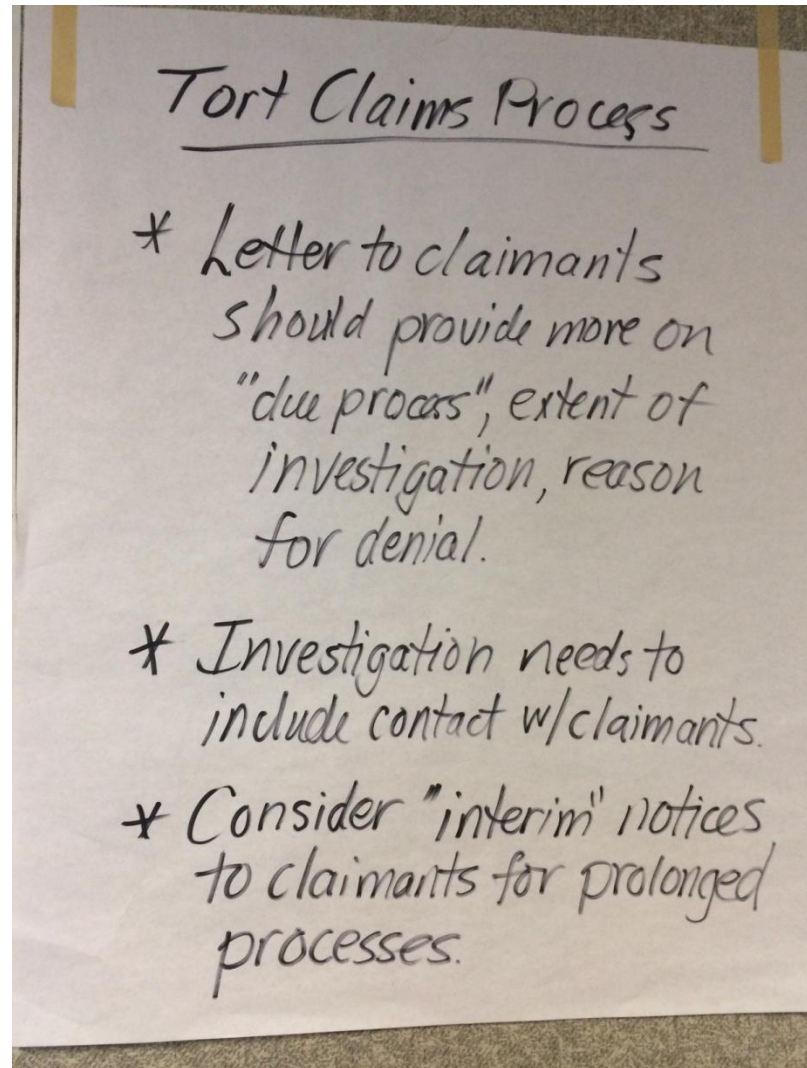 Tort Claims Process
* Letter to claimants
should provide more on
"due process", extent of
investigation, reason
for denial.
* Investigation needs to
include contact w/claimants.
* Consider "interim" notices
to claimants for prolonged
processes.